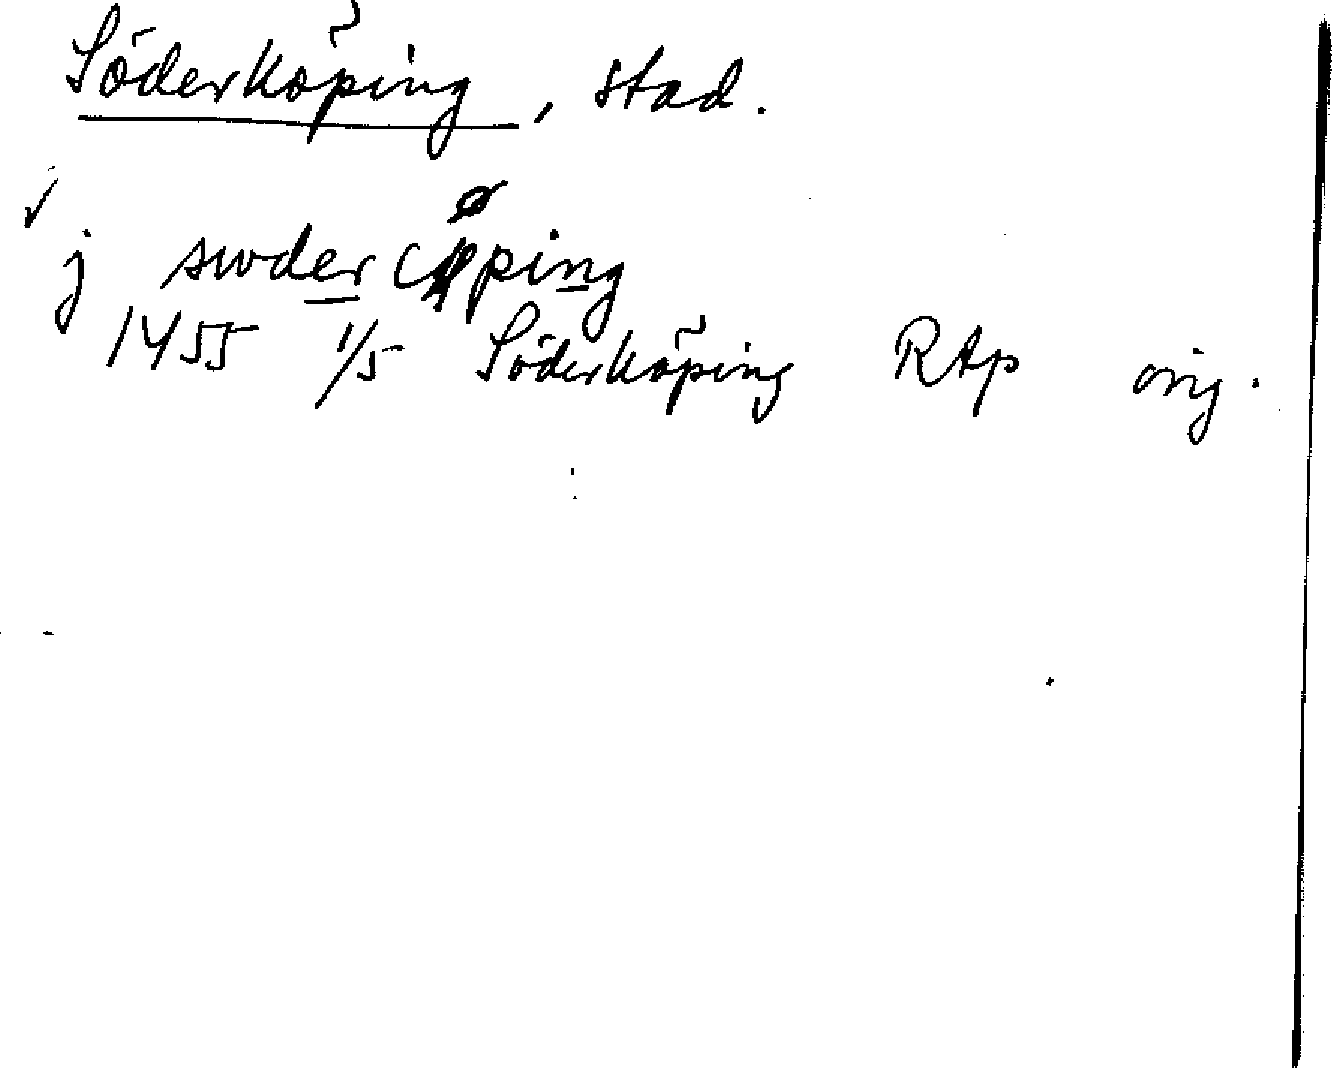 Söderköping, stad.
j swdercøping
1455 1/5 Söderköping RAp orig.